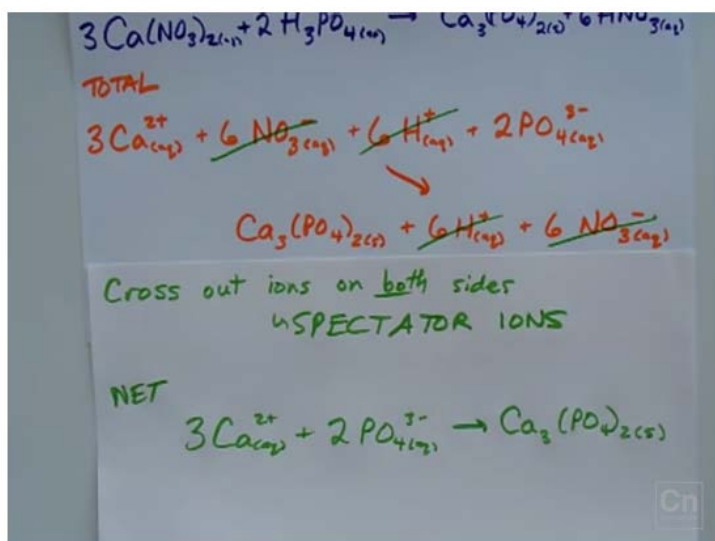 3Ca(NO₃)₂(aq) + 2H₃PO₄(aq) → Ca₃(PO₄)₂(s) + 6HNO₃(aq)
TOTAL
3Ca²⁺(aq) + 6NO₃⁻(aq) + 6H⁺(aq) + 2PO₄³⁻(aq)
↘
Ca₃(PO₄)₂(s) + 6H⁺(aq) + 6NO₃⁻(aq)
Cross out ions on both sides
↳SPECTATOR IONS
NET
3Ca²⁺(aq) + 2PO₄³⁻(aq) → Ca₃(PO₄)₂(s)
Cn